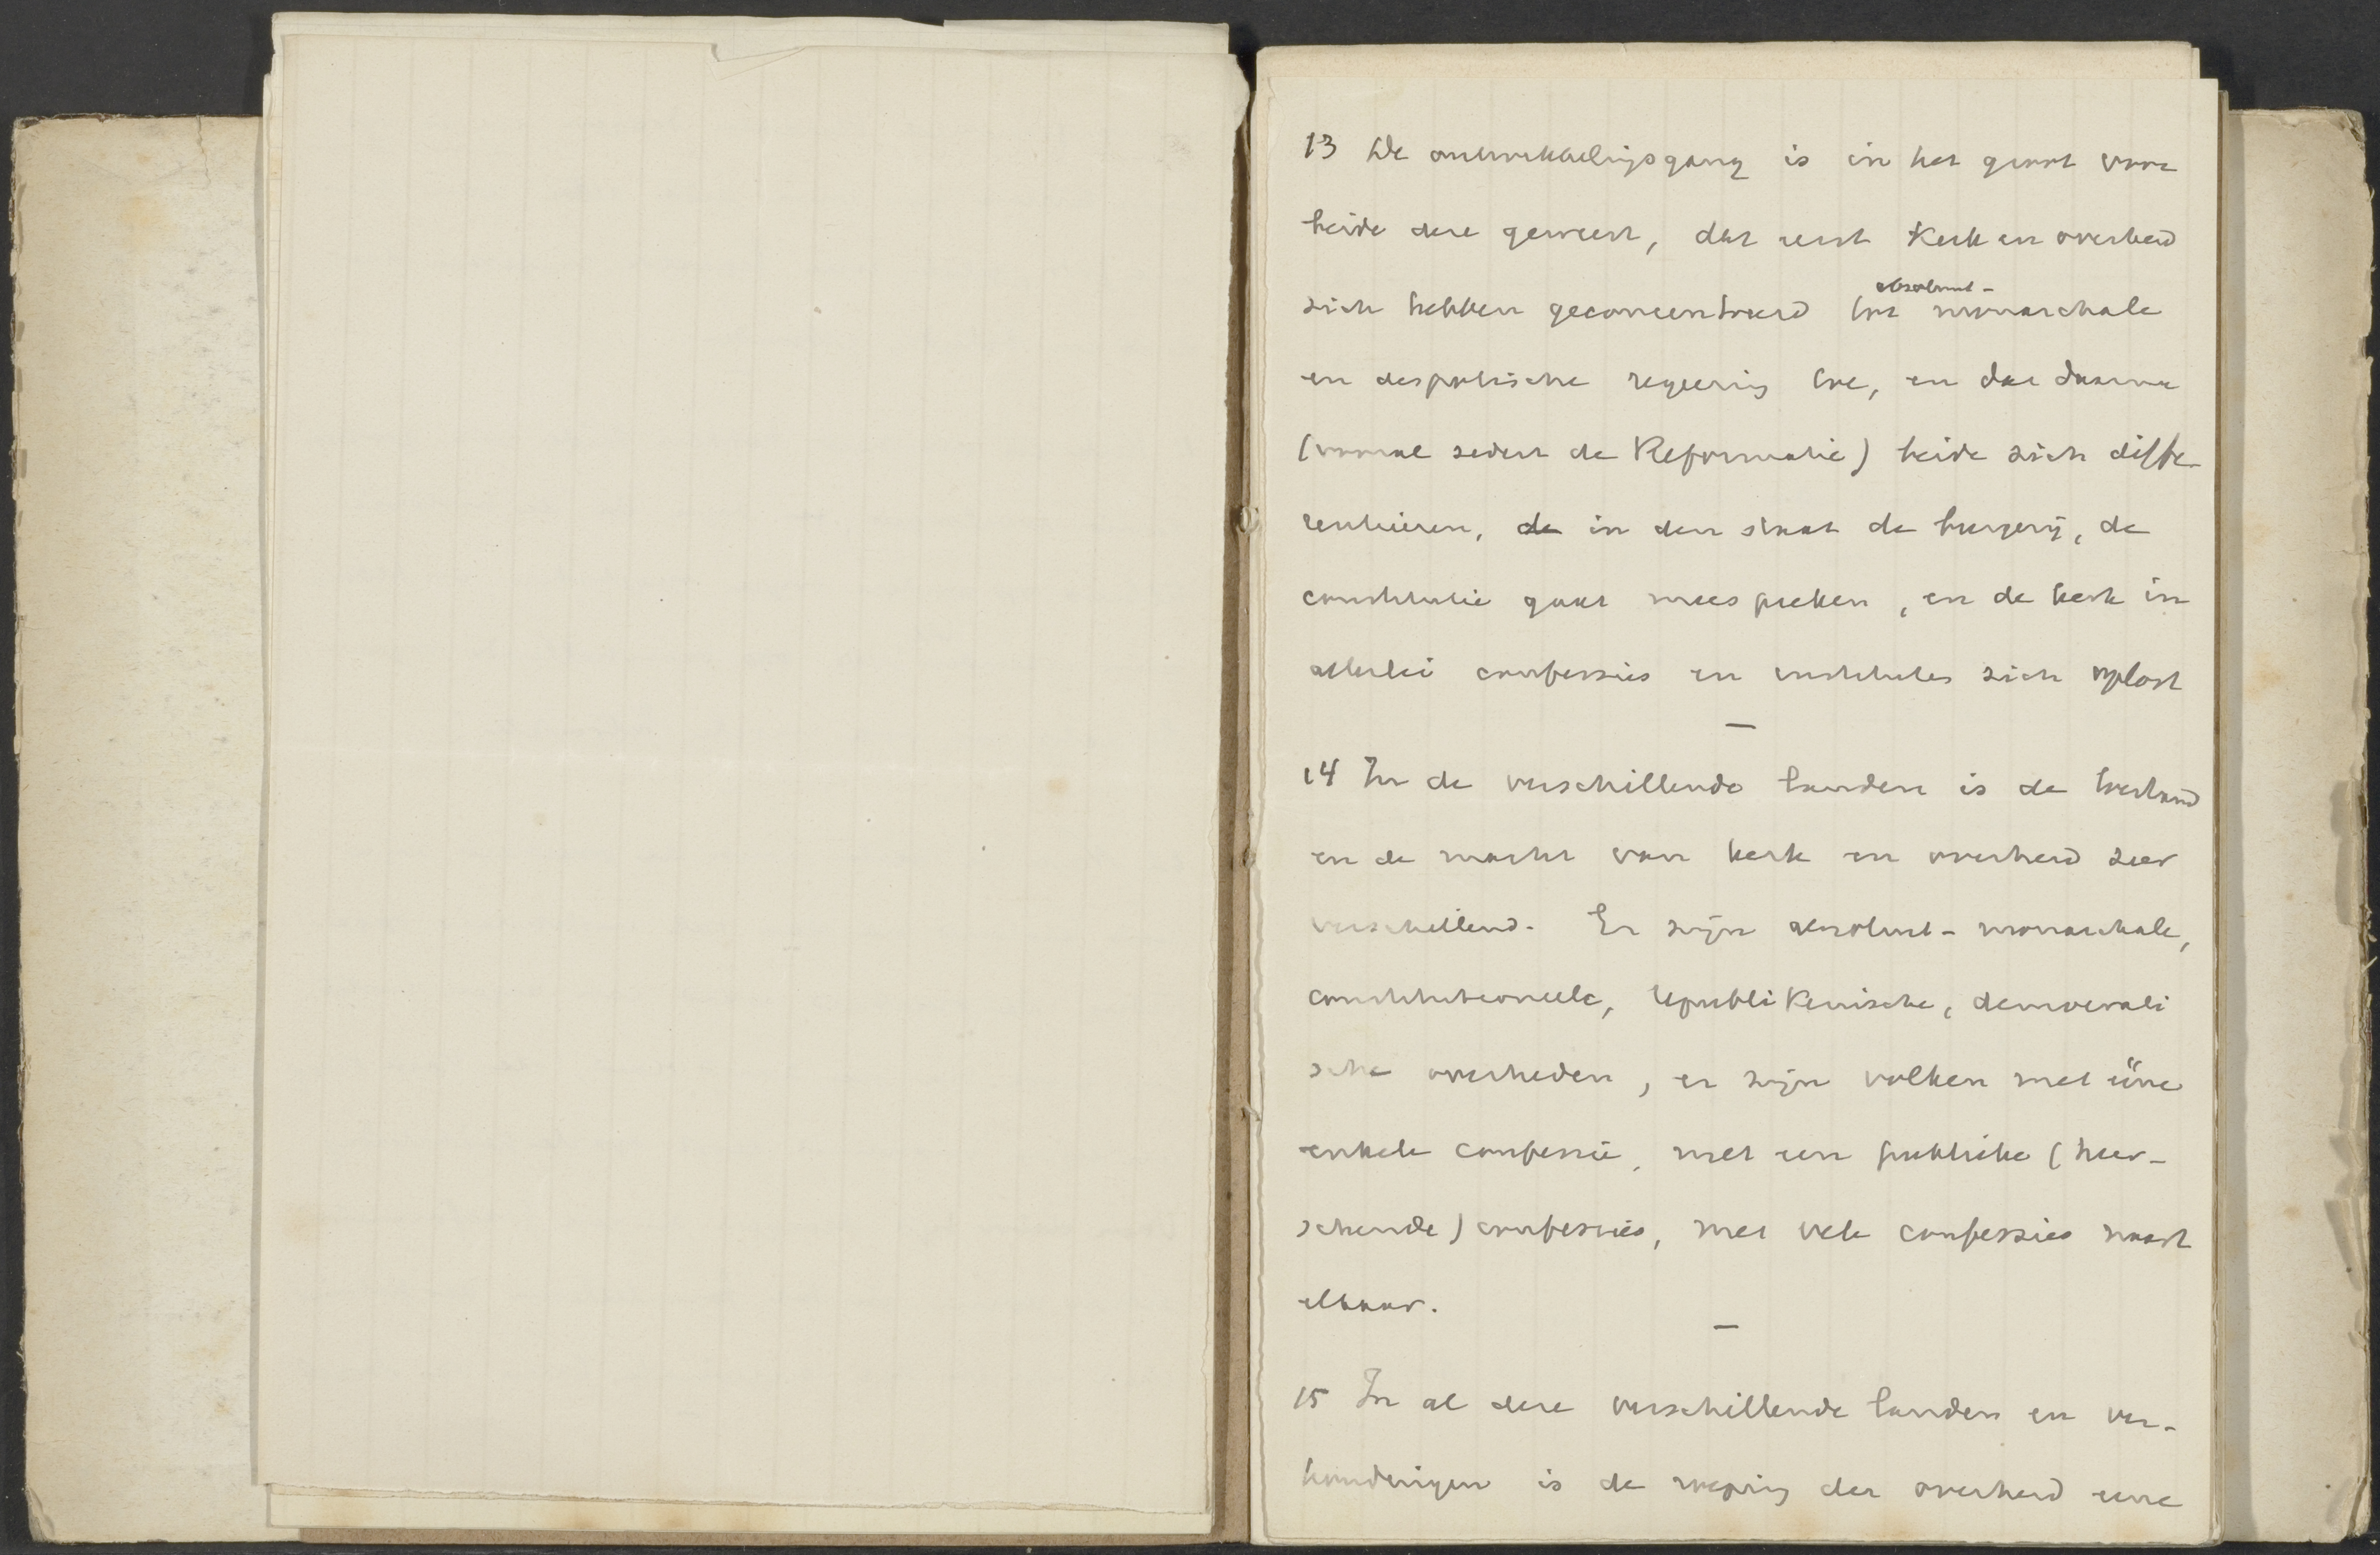 13 De ontwikkelingsgang is in het groot voor
beide deze geweest, dat eerst Kerk en overheid
zich hebben geconcentreerd tot absoluut- monarchale
en despotische regeering toe, en dat daarna
(vooral sedert de Reformatie) beide zich diffe-
rentiëeren, de in den staat de burgerij, de
constitutie gaat meespreken, en de kerk in
allerlei confessies en instituten zich oplost
—
14 In de verschillende landen is de toestand
en de macht van kerk en overheid zeer
verschillend. Er zijn absoluut-monarchale,
constitutioneele, republikeinsche, democrati
sche overheden, er zijn volken met ééne
enkele confessie, met een publieke (heer-
schende) confessies, met vele confessies naast
elkaar.
—
15 In al deze verschillende landen en ver-
houdingen is de roeping der overheid eene